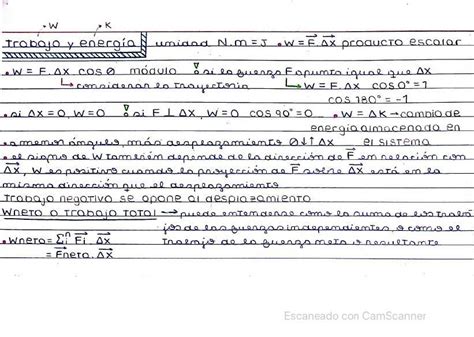 W K
Trabajo y energía unidad N.m=J .W=F⃗.Δx⃗ producto escalar
.W = F.Δx cos Ø módulo si la fuerza F apunta igual que Δx
↳ considerar la trayectoria ↳ W = F.Δx cos 0° = 1
cos 180° = -1
.si Δx=0, W=0 si F⊥Δx, W=0 cos 90°=0 .W = ΔK → cambio de
energía almacenada en
.a menor ángulo, más desplazamiento Ø↓↑Δx el sistema
.el signo de W también depende de la dirección de F⃗ en relación con
Δx⃗, W es positivo cuando la proyección de F⃗ sobre Δx⃗ está en la
misma dirección que el desplazamiento
Trabajo negativo se opone al desplazamiento
Wneto o trabajo total → puede entenderse como la suma de los traba
jos de las fuerzas independientes, o como el
.Wneto = Σⁿᵢ F⃗i . Δx⃗ trabajo de la fuerza neta o resultante
= F⃗neta . Δx⃗
Escaneado con CamScanner